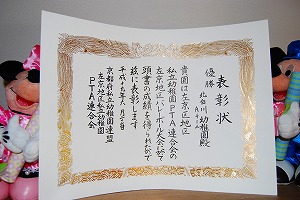 表彰状
優勝
北白川幼稚園殿
Aチーム
貴園は左京区地区
私立幼稚園PTA連合会の
左京地区バレーボール大会に於て
頭書の成績を得られたので
茲に表彰します
平成十九年六月 日
京都府私立幼稚園連盟
左京地区私立幼稚園
PTA連合会